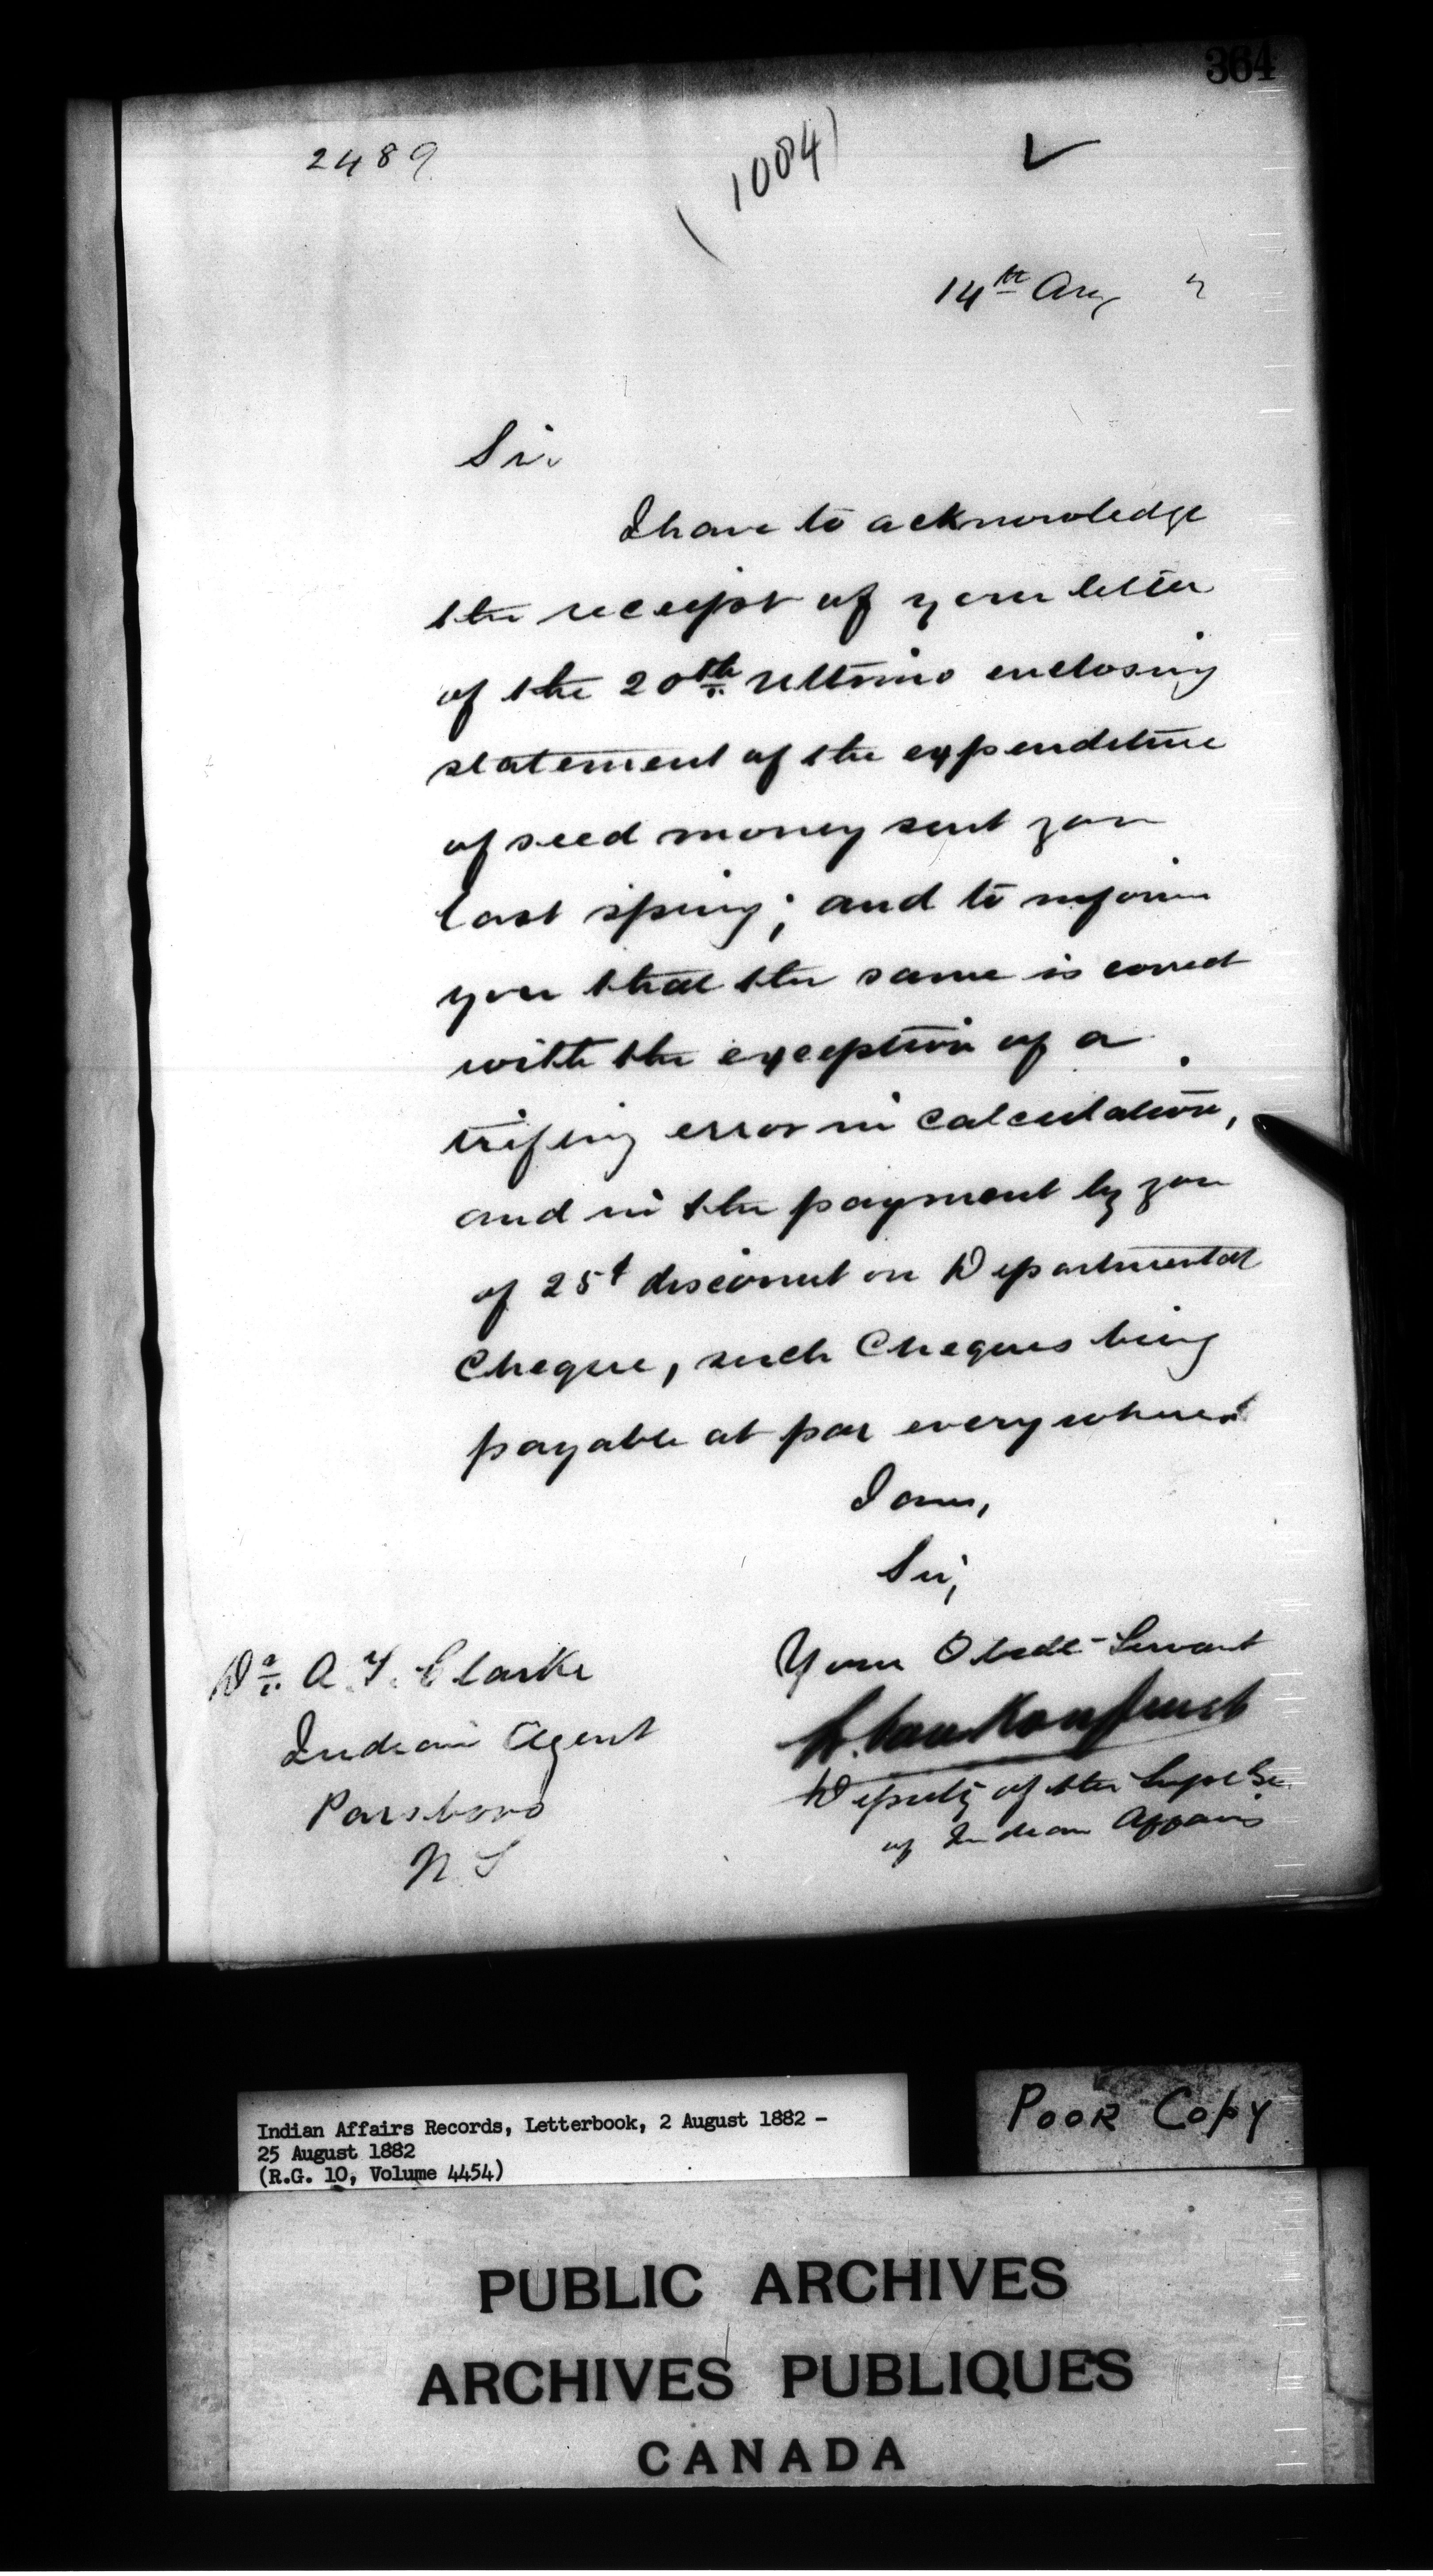 364
2489
(1084)
14th Aug 2
Sir
I have to acknowledge
the receipt of your letter
of the 20th ultimo enclosing
statement of the expenditure
of seed money sent you
last spring; and to inform
you that the same is correct
with the exception of a
trifling error in calculation,
and in the payment by you
of 25¢ discount on Departmental
Cheque, such Cheques being
payable at par everywhere.
I am,
Sir,
Your Obedt Servant
L. VanKoughnet
Deputy of the Supt Ge
of Indian Affairs
Dr. A. F. Clarke
Indian Agent
Parsboro
N S
Indian Affairs Records, Letterbook, 2 August 1882 -
25 August 1882
(R.G. 10, Volume 4454)
POOR COPY
PUBLIC ARCHIVES
ARCHIVES PUBLIQUES
CANADA